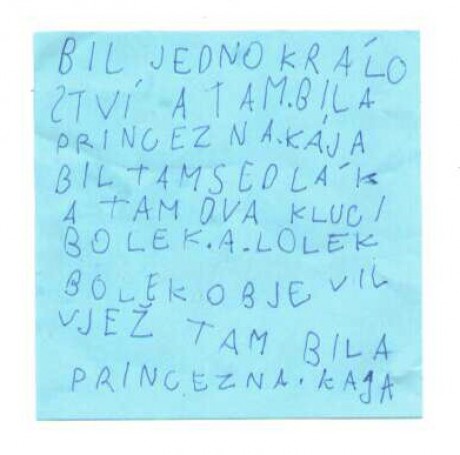 BIL JEDNO KRÁLO
ZTVÍ A TAM.BÍLA
PRINCEZNA.KÁJA
BIL TAM SEDLÁK
A TAM DVA KLUCI
BOLEK.A.LOLEK
BOLEK OBJEVIL
VJEŽ TAM BILA
PRINCEZNA.KAJA